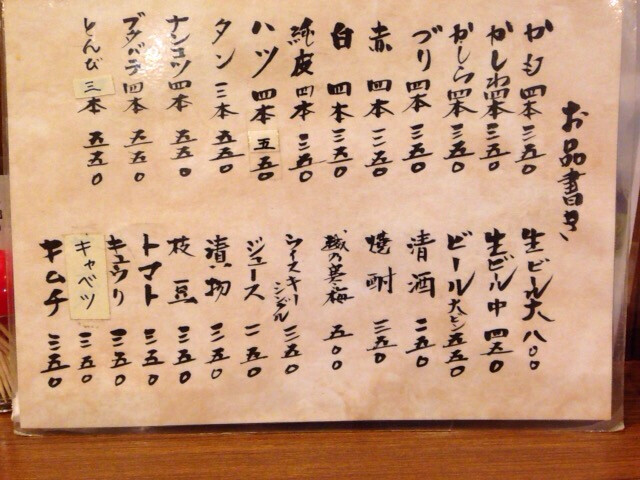 お品書き
かも 四本 三五〇
かしわ 四本 三五〇
かしら 四本 三五〇
づり 四本 三五〇
赤 四本 三五〇
白 四本 三五〇
純皮 四本 三五〇
ハツ 四本 五五〇
タン 三本 五五〇
ナンコツ 四本 五五〇
ブタバラ 四本 五五〇
とんび 三本 五五〇
生ビール大 八〇〇
生ビール中 四五〇
ビール大ビン 五五〇
清酒 二五〇
焼酎 三五〇
越乃寒梅 五〇〇
ウイスキーシングル 三五〇
ジュース 二五〇
漬物 三五〇
枝豆 三五〇
トマト 三五〇
キュウリ 三五〇
キャベツ 三五〇
キムチ 三五〇